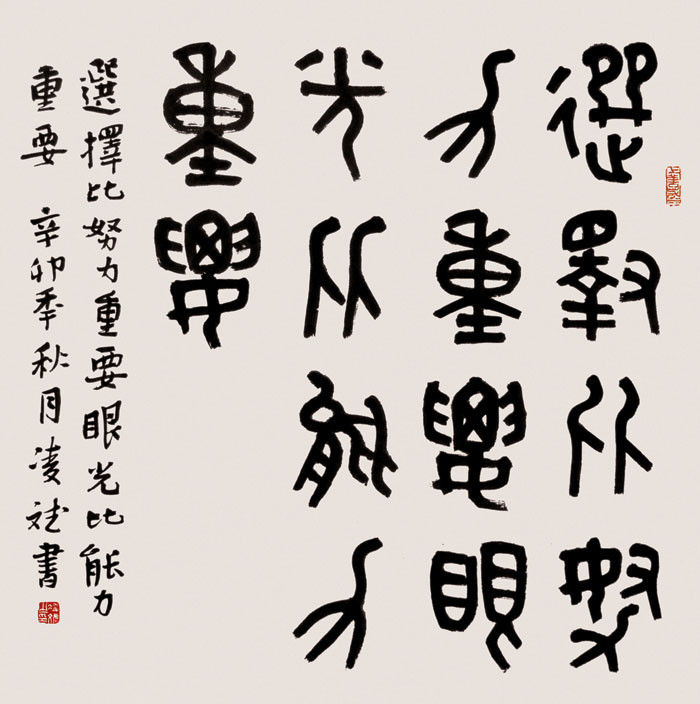 選擇比努
力重要眼
光比能力
重要
選擇比努力重要眼光比能力
重要 辛卯秊秋月凌斌書